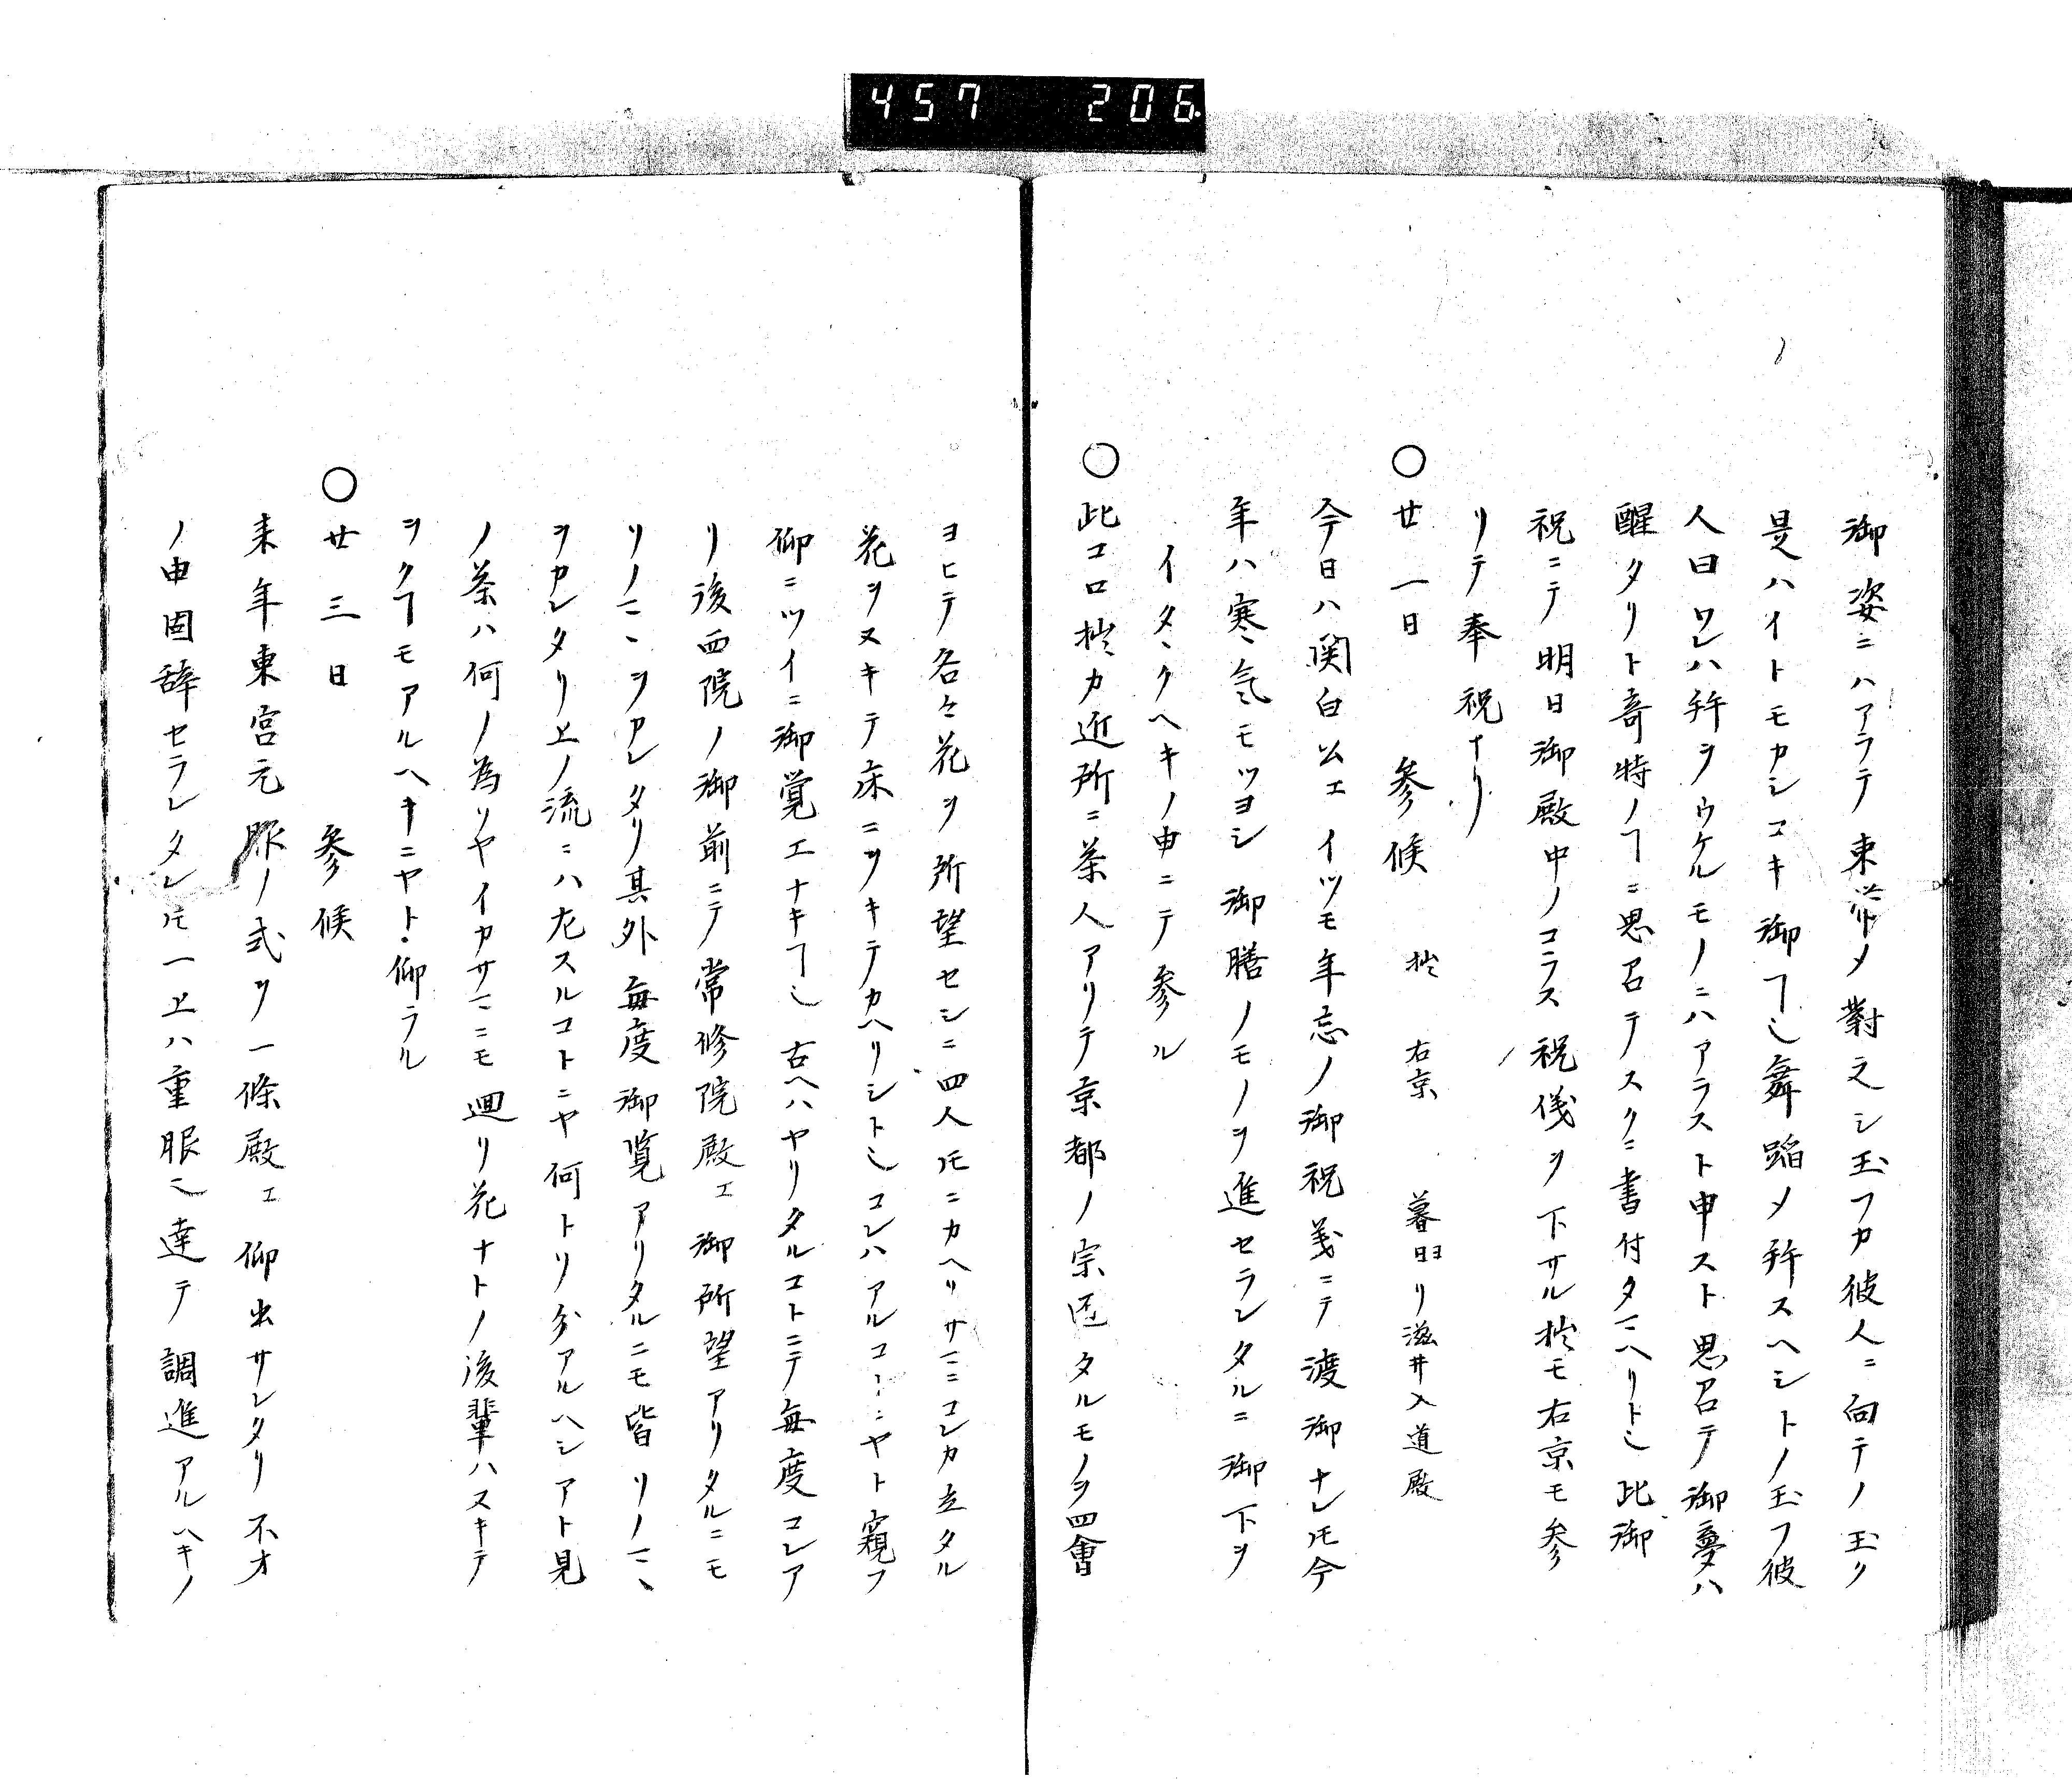 457 206
御姿ニハアラテ束帯メ對之シ玉フカ彼人ニ向テノ玉ク
是ハイトモカシコキ御ヿ乄舞蹈メ拝スヘシトノ玉フ彼
人曰ワレハ拝ヲウケルモノニハアラスト申スト思召テ御夢ハ
醒タリト奇特ノヿニ思召テスクニ書付タマヘリト也此御
祝ニテ明日御殿中ノコラス祝儀ヲ下サル拙モ右京モ参
リテ奉祝ナリ
○廿一日 参候 拙 右京 暮日ヨリ滋井入道殿
今日ハ関白公エイツモ年忘ノ御祝義ニテ渡御ナレ𪜈今
年ハ寒気モツヨシ御膳ノモノヲ進セラレタルニ御下ヲ
イタヽクヘキノ申ニテ参ル
○此コロ拙カ近所ニ茶人アリテ京都ノ宗匠タルモノヲ四會
ヨヒテ各々花ヲ所望セシニ四人𪜈ニカヘリサマニコレカ立タル
花ヲヌキテ床ニヲキテカヘリシト也コレハアルコトニヤト窺フ
仰ニツイニ御覚エナキヿ也古ヘハヤリタルコトニテ毎度コレア
リ後西院ノ御前ニテ常修院殿エ御所望アリタルニモ
ソノマヽヲカレタリ其外毎度御覧アリタルニモ皆ソノマヽ
ヲカレタリ上ノ流ニハ左スルコトニヤ何トソ分アルヘシアト見
ノ茶ハ何ノ為ソヤイカサマニモ廻リ花ナトノ後輩ハスキテ
ヲクヿモアルヘキニヤト仰ラル
○廿三日 参候
来年東宮元服ノ式ヲ一條殿エ仰出サレタリ不才
ノ申固辞セラレタレ𪜈一上ハ重服ニ逹テ調進アルヘキノ